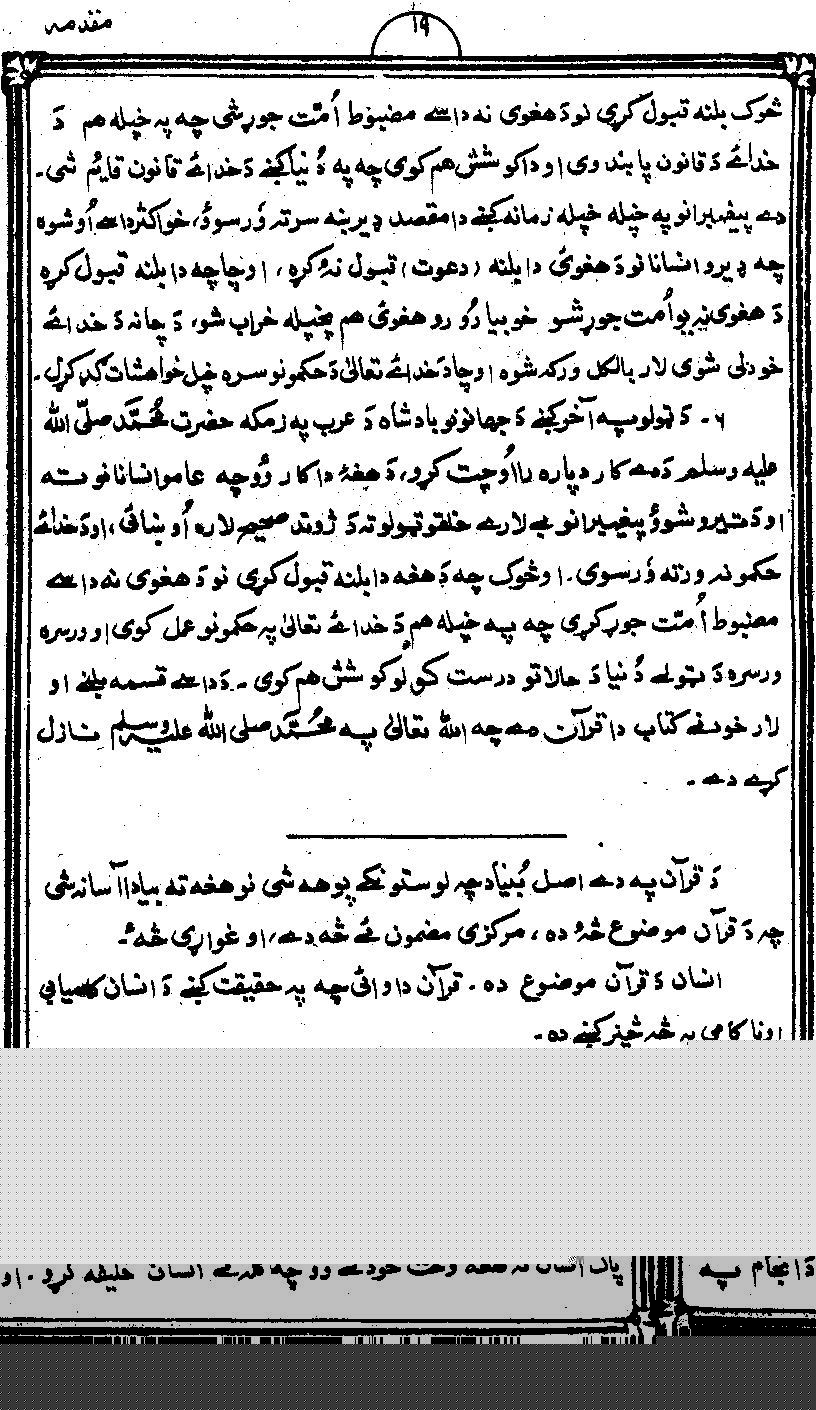 مقدمه
۱۹
څوک بلنه قبول کړی نو د هغوی نه داسے مضبوط اُمّت جوړ شی چه په خپله هم دَ
خدائے دَ قانون پابند وی او دا کوشش هم کوی چه په دُنیا کښے دَ خدائے قانون قایٔم شی۔
دے پیغمبرانو په خپله خپله زمانه کښے دا مقصد ډیر ښه سرته وَرسوؤ، خو اکثر داسے اُوشوه
چه ډیرو انسانانو دَ هغویٔ دا بلنه (دعوت) قبول نهٔ کړه، او چا چه دا بلنه قبول کړه
دَ هغوی نه یو اُمت جوړ شو خو بیا رُو رو هغویٔ هم پخپله خراب شو، دَ چا نه دَ خدائے
خودلی شوی لار بالکل ورکه شوه او چا دَ خدائے تعالیٰ دَ حکمونو سره خپل خواهشات ګډ کړل۔
۶۔ دَ ټولو په آخر کښے دَ جهانونو بادشاه دَ عرب په زمکه حضرت مُحَمَّد صلّی الله
علیه وسلم دَ دے کار دپاره را اُوچت کړو، دَ هغهٔ دا کار وُو چه عامو انسانانو ته
او دَ تیرو شوؤ پیغمبرانو بے لارے خلقو ټولو ته دَ ژوند صحیح لاره اُوښائی، او دَ خدائے
حکمونه ورته وَرسوی۔ او څوک چه دَ هغه دا بلنه قبول کړی نو دَ هغوی نه داسے
مضبوط اُمّت جوړ کړی چه په خپله هم دَ خدائے تعالیٰ په حکمونو عمل کوی او ورسره
ورسره دَ ټولے دُنیا دَ حالاتو درست کولو کوشش هم کوی۔ دَ داسے قسمه بلنے او
لار خودنے کتاب دا قرآن دے چه الله تعالیٰ په مُحَمَّد صلی الله علیه وسلم نازل
کړے دے۔
دَ قرآن په دے اصل بُنیاد چه لوستونکے پوهه شی نو هغه ته بیا دا آسانه شی
چه دَ قرآن موضوع څهٔ ده، مرکزی مضمون ئے څه دے، او غواړی څهٔ۔
انسان دَ قرآن موضوع ده۔ قرآن دا وائی چه په حقیقت کښے دَ انسان کامیابی
او ناکامی په څه څیز کښے ده۔
دَ انجام په
خلیفه کړو۔ او